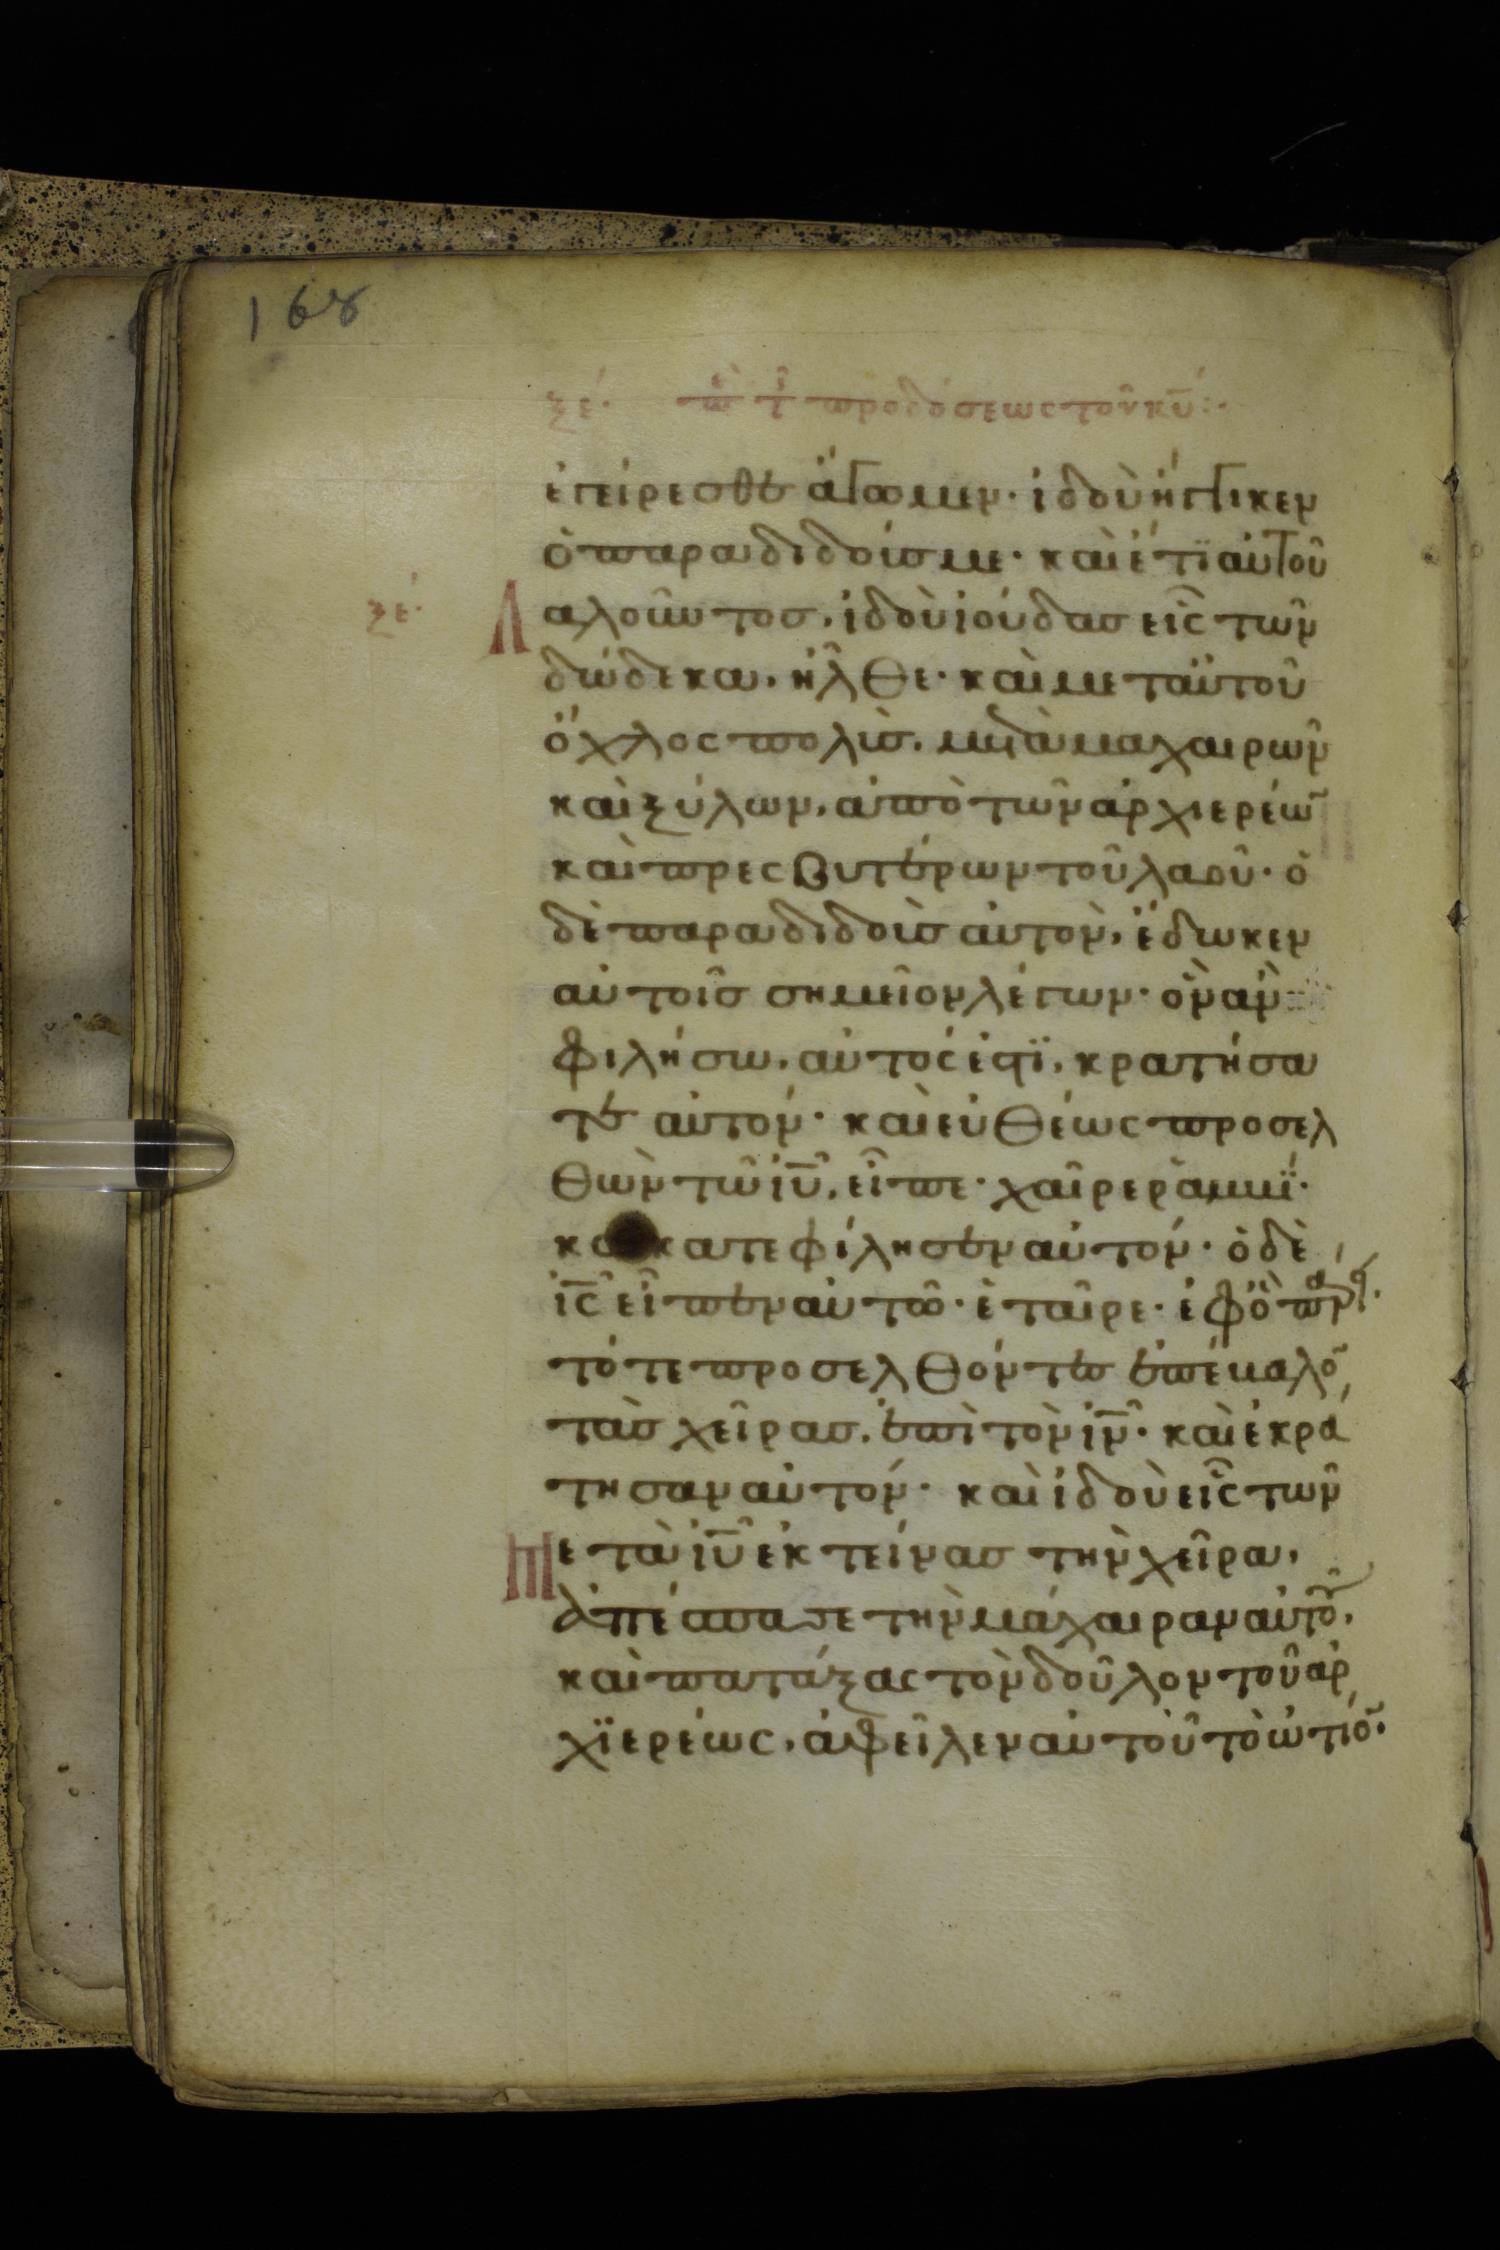 168
ξε΄. πε τ προδόσεως τοῦ κυ :·
ἐγείρεσθε ἄγωμεν· ἰδοὺ ἤγγικεν
ὁ παραδιδοίσ με· καὶ ἔτϊ αὐτοῦ
ξε΄· Λαλοῦντοσ, ἰδοὺ ἰούδασ εἷς τῶν
δώδεκα, ἦλθε· καὶ μεταὐτοῦ
ὄχλος πολὶσ, μετὰ μαχαιρῶν
καὶ ξύλων, ἀπὸ τῶν ἀρχιερέω̃
καὶ πρεσβυτέρων τοῦ λαοῦ· ὁ
δὲ παραδιδοὶσ αὐτὸν, ἔδωκεν
αὐτοῖσ σημεῖον λέγων· ὃν ἂν
φιλήσω, αὐτός ἐστϊ, κρατήσα
τε αὐτόν· καὶ εὐθέως προσελ
θὼν τῶ ἰῦ, εἶπε· χαῖρε ῥαμμΐ·
καὶ κατεφίλησεν αὐτόν· ὁ δὲ
ἰς̅ εἶπεν αὐτῶ· ἑταῖρε· ἐφ ὃ πάρει·
τότε προσελθόντεσ ἐπέμαλο̃
τὰσ χεῖρασ, ἐπὶ τὸν ἰν̅· καὶ ἐκρά
τησαν αὐτόν· καὶ ἰδοὺ εἷς τῶν
Μετὰ ἰῦ ἐκτείνασ τὴν χεῖρα,
ἀπέσπασε τὴν μάχαιραν αὐτοῦ,
καὶ πατάξας τὸν δοῦλον τοῦ ἀρ
χϊερέως, ἀφεῖλεν αὐτοῦ τὸ ὠτίο̃·